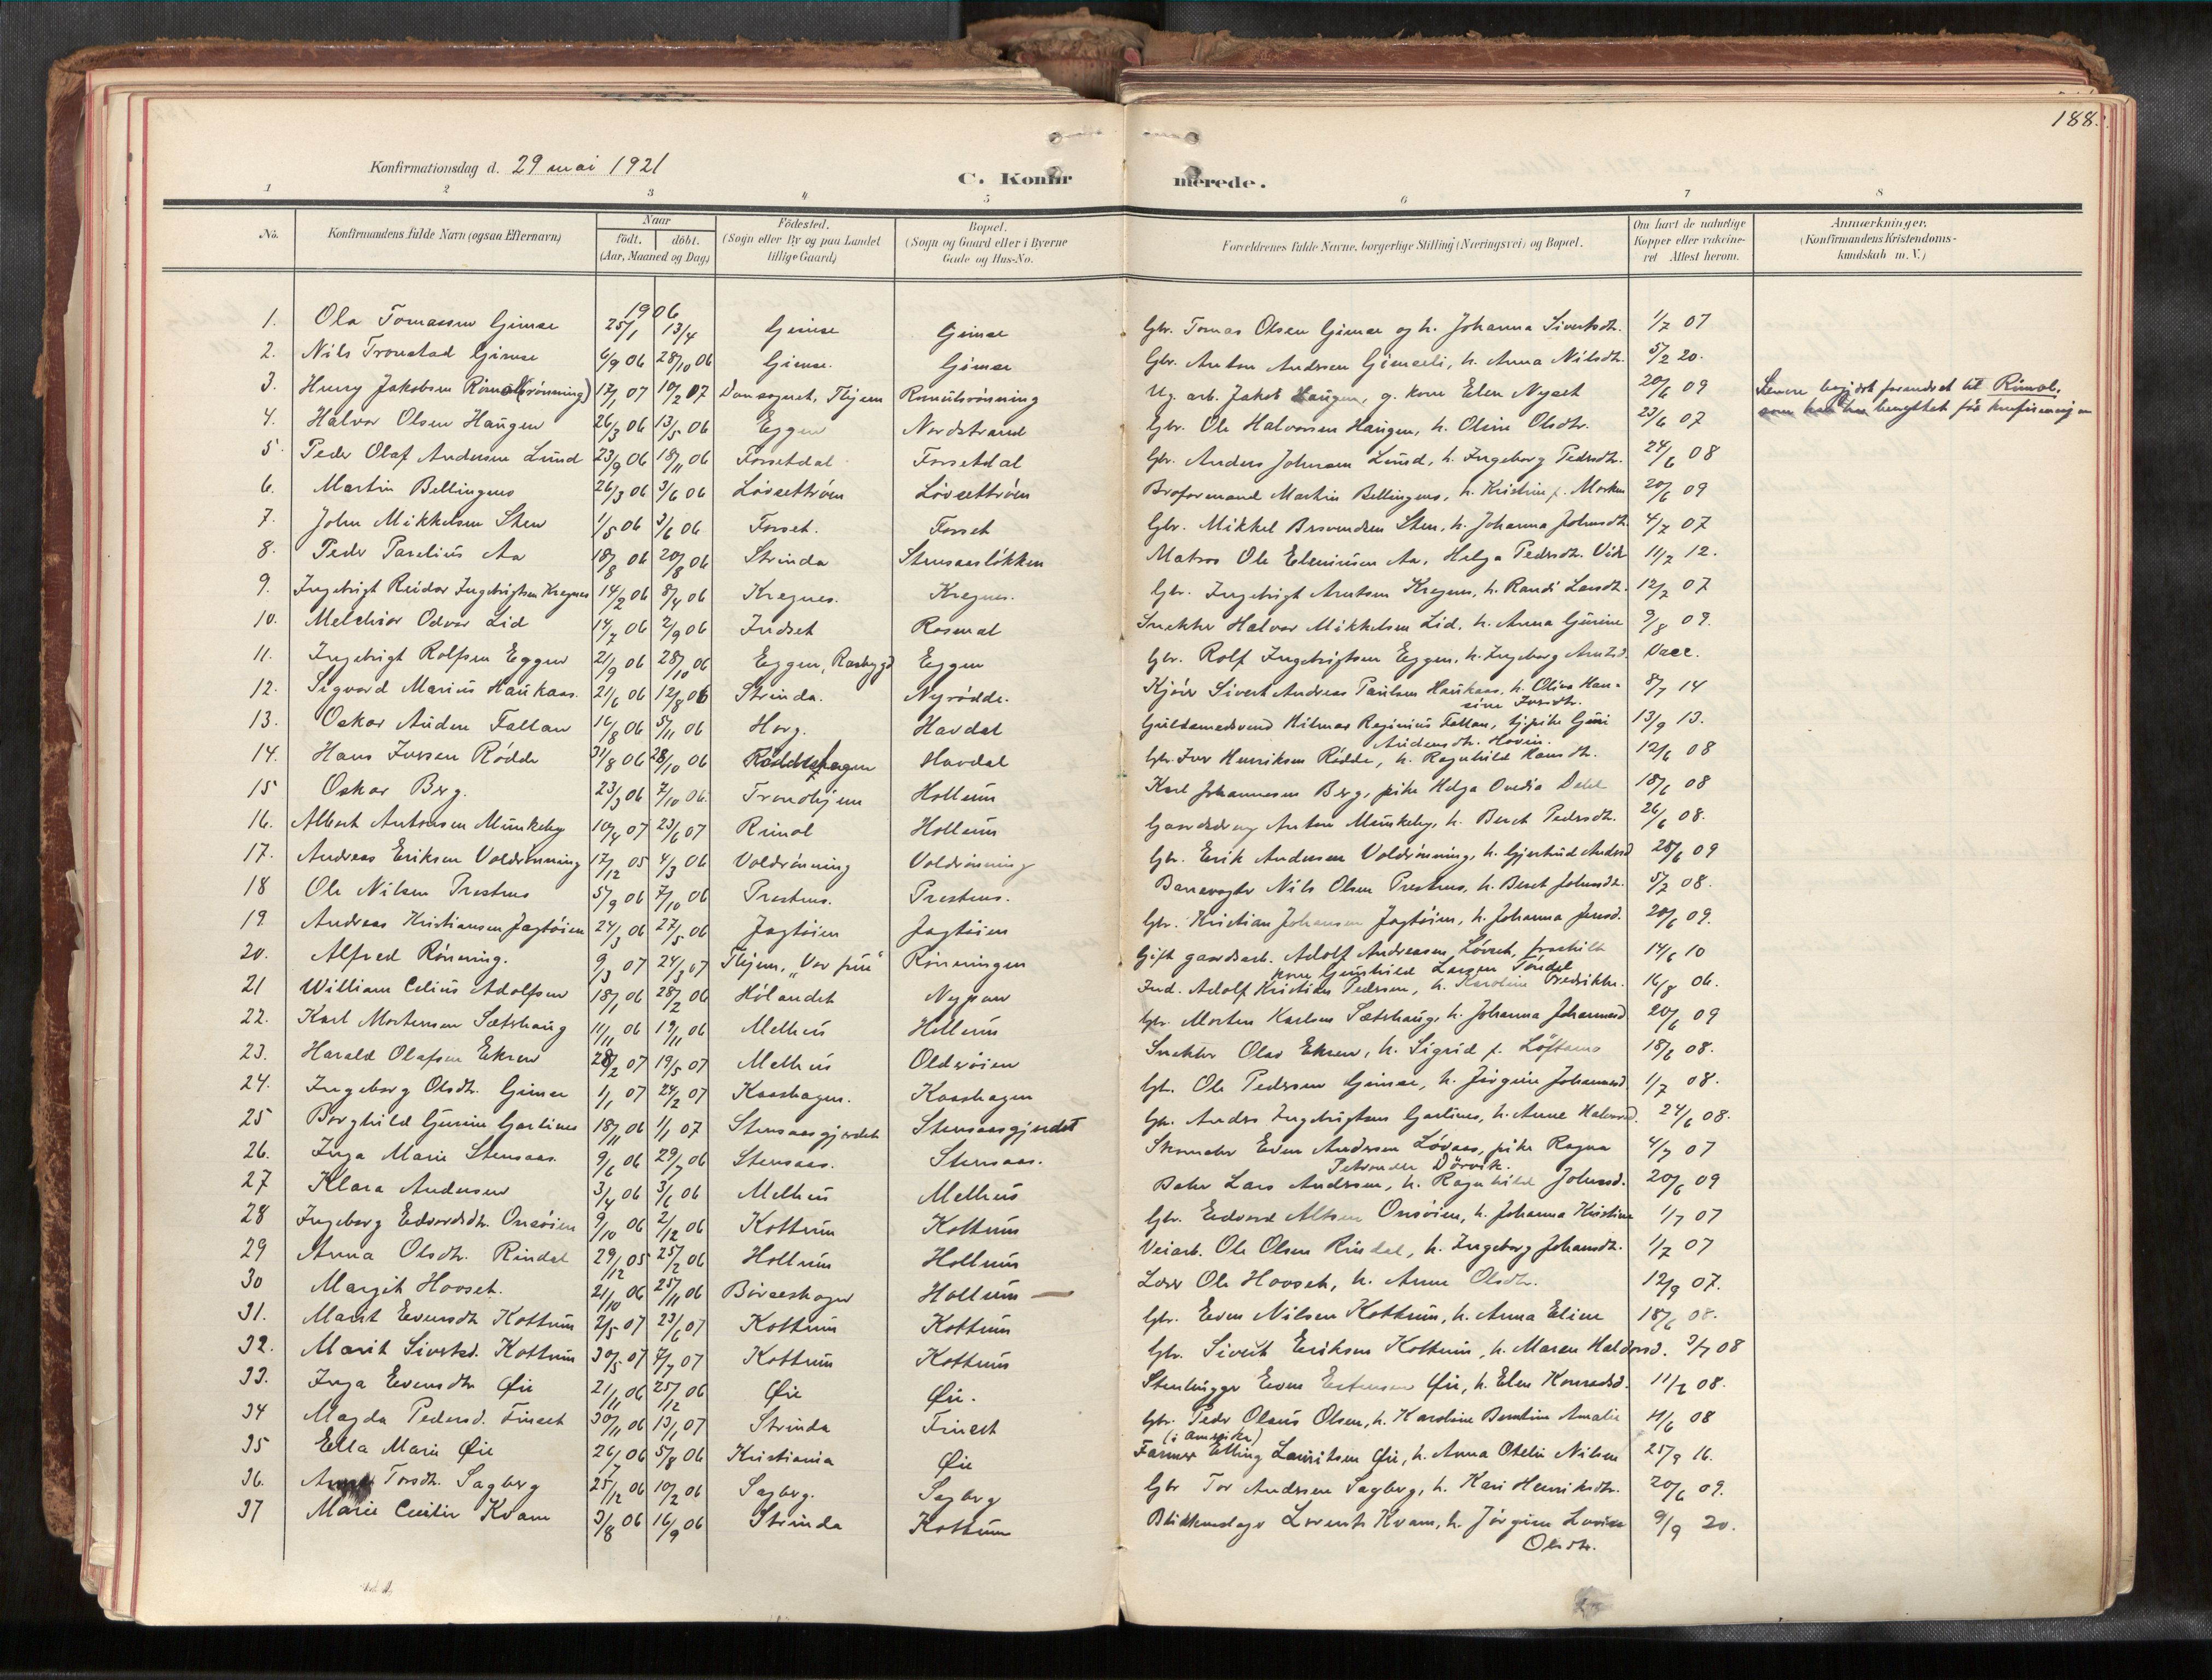 188.
Konfirmationsdag d. 29 mai 1921
C. Konfir merede.
1 2 3 4 5 6 7 8
No. Konfirmandens fulde Navn (ogsaa Efternavn) Naar født. døbt. (Aar, Maaned og Dag) Fødested. (Sogn eller By og paa Landet tillige Gaard) Bopæl. (Sogn og Gaard eller i Byerne Gade og Hus-No. Forældrenes fulde Navne, borgerlige Stilling (Næringsvei) og Bopæl. Om havt de naturlige Kopper eller vakcineret Attest herom. Anmærkninger. (Konfirmandens Kristendomskundskab m. V.)
1906
1. Ola Tomassen Gimse 25/1 13/4 Gimse Gimse Gbr. Tomas Olsen Gimse og h. Johanna Sivertsdt. 1/7 07
2. Nils Tronstad Gimse 6/9 06 28/10 06 Gimse. Gimse Gbr. Anton Andersen Gimseli, h. Anna Nilsdt. 5/2 20.
3. Henry Jakobsen Rimol(rønning) 17/1 07 10/2 07 Domsognet, Thjem Rimolsrønning Ug. arb. Jakob Haugen, g. kone Elen Nyset 20/6 09 Senere begjært forandret til Rimol,
4. Halvor Olsen Haugen 26/3 06 13/5 06 Eggen Nordstrand Gbr. Ole Halvorsen Haugen, h. Oline Olsdtr. 23/6 07 som benyttet før
5. Peder Olaf Andersen Lund 23/9 06 18/11 06 Forsetdal Forsetdal Gbr. Anders Johnsen Lund, h. Ingeborg Pedersdt. 24/6 08
6. Martin Bellingmo 26/3 06 3/6 06 Løvsettrøen Løvsettrøen Broformand Martin Bellingmo, h. Kristine f. Morken 20/6 09
7. John Mikkelsen Sten 1/5 06 3/6 06 Forset. Forset Gbr. Mikkel Sten, h. Johanna Johnsdt. 4/7 07
8. Peder Parelius Aa 18/8 06 20/8 06 Strinda Stensaasløkken Matros Ole Aa, Helga Pedersdt. 11/7 12.
9. Ingebrigt Reidar Ingebrigtsen Kregnes 14/2 06 8/4 06 Kregnes. Kregnes. Gbr. Ingebrigt Arntsen Kregnes, h. Randi Larsdt. 12/7 07
10. Melchior Odvar Lid 14/7 06 2/9 06 Indset Rosmæl Snekker Halvor Mikkelsen Lid, h. Anna Gurine 9/8 09.
11. Ingebrigt Rolfsen Eggen 21/9 06 28/10 06 Eggen, Eggen Gbr. Rolf Ingebrigtsen Eggen, h. Ingeborg Arntsd. Vacc.
12. Sigvard Marius Haukaas. 21/6 06 12/8 06 Strinda. Nyrødde. Kjører Sivert Andreas Paulsen Haukaas, h. Olise Han-
sine Iversdtr. 8/7 14
13. Oskar Auden Fallan 16/8 06 5/11 06 Horg. Havdal Guldsmedsvend Hilmar Reginius Fallan, tj.pike Guri
Audensdtr. Hovin. 13/9 13.
14. Hans Iversen Rødde 31/8 06 28/10 06 Røddeshagen Havdal Gbr. Iver Henriksen Rødde, h. Ragnhild Hansdt. 12/6 08
15 Oskar Berg. 23/3 06 7/10 06. Trondhjem Hollum Karl Johannesen Berg, pike Helga Ovedia Dahl 18/6 08
16. Albert Antonsen Munkeby 10/4 07 23/6 07 Rimol Hollum Gaardsdreng Anton Munkeby, h. Beret Pedersdt. 26/6 08.
17. Andreas Eriksen Voldrønning 17/12 05 4/3 06 Voldrønning Voldrønning Gbr. Erik Andersen Voldrønning, h. Gjertrud Andersd 28/6 09
18 Ole Nilsen Prestmo 5/9 06 7/10 06 Prestmo. Prestmo. Banevogter Nils Olsen Prestmo, h. Beret Johnsdt. 5/2 08.
19 Andreas Kristiansen Jagtøien 24/3 06 27/5 06 Jagtøien Jagtøien Gbr. Kristian Johansen Jagtøien, h. Johanna Jensd. 20/6 09.
20. Alfred Rønning. 9/3 07 24/3 07 Thjem, "Vor frue" Rønningen Gift gaardsarb. Adolf Andreasen Løvset, fraskilt
kone Gunhild Larsen Tøndel 14/6 10
21 William Celius Adolfsen 18/1 06 28/2 06 Hølandet Nypan Ind. Adolf Kristian Pedersen, h. Karoline Fredrikke. 16/8 06.
22. Karl Mortensen Sætshaug 11/11 06 19/11 06 Melhus Hollum Gbr. Morten Karlsen Sætshaug, h. Johanna Johannesd 20/6 09
23. Harald Olafsen Ekren 28/2 07 19/5 07 Melhus Oldersøien Snekker Olav Ekren, h. Sigrid f. Løftamo 18/6 08.
24. Ingeborg Olsdt. Gimse 1/1 07 24/2 07 Kaashagen. Kaashagen Gbr. Ole Pedersen Gimse, h. Jørgine Johannesd 1/7 08.
25 Borghild Gurine Garlimo 18/11 06 1/1 07 Stensaasgjerdet Stensaasgjerdet Gbr. Anders Ingebrigtsen Garlimo, h. Anne Halvorsd. 24/6 08.
26. Inga Marie Stensaas. 9/6 06 29/7 06 Stensaas. Stensaas. Skomaker Even Andersen Løvaas, pike Ragna
Petronelle Dørvik. 4/7 07
27 Klara Andersen 3/4 06 3/6 06 Melhus Melhus Baker Lars Andersen, h. Ragnhild Johnsd. 20/6 09
28 Ingeborg Edvardsdt. Onsøien 9/10 06 2/12 06 Kottum Kottum Gbr. Edvard Onsøien, h. Johanna Kristine 1/7 07
29 Anna Olsdtr. Rindal 29/12 05 25/2 06 Hollum Hollum Veiarb. Ole Olsen Rindal, h. Ingeborg Johansdt. 1/7 07
30 Margit Hovset. 21/10 06 25/11 06 Børseshagen Hollum — Lærer Ole Hovset, h. Anne Olsdtr. 12/9 07.
31. Marit Evensdt Kottum 2/5 07 23/6 07 Kottum Kottum Gbr. Even Nilsen Kottum, h. Anna Eline 18/6 08.
32. Marit Siversd. Kottum 30/5 07 7/7 07 Kottum Kottum Gbr. Sivert Eriksen Kottum, h. Maren Haldorsd. 3/7 08
33. Inga Evensdtr Øie 21/11 06 25/12 06 Øie Øie. Stenhugger Even Estensen Øie, h. Elen Konradsd. 11/7 08.
34 Magda Pedersd. Fineset 30/11 06 13/1 07 Strinda Gbr. Peder Olaus Olsen, h. Karoline Berntine Amalie 11/6 08
35 Ella Marie Øie 26/7 06 5/8 06 Kristiania Øie (i Amerika)
Farmer Elling Lauritsen Øie, h. Anna Otelie Nilsen 25/9 16.
36. Torsdt. Sagberg 25/12 06 10/2 06 Sagberg. Sagberg Gbr Tor Andersen Sagberg, h. Kari Henriksdtr. 20/6 09.
37 Marie Cecilie Kvam 3/8 06 16/9 06 Strinda Kottum Blikkenslager Lorents Kvam, h. Jørgine Lovise
Olsdtr. 9/9 20.